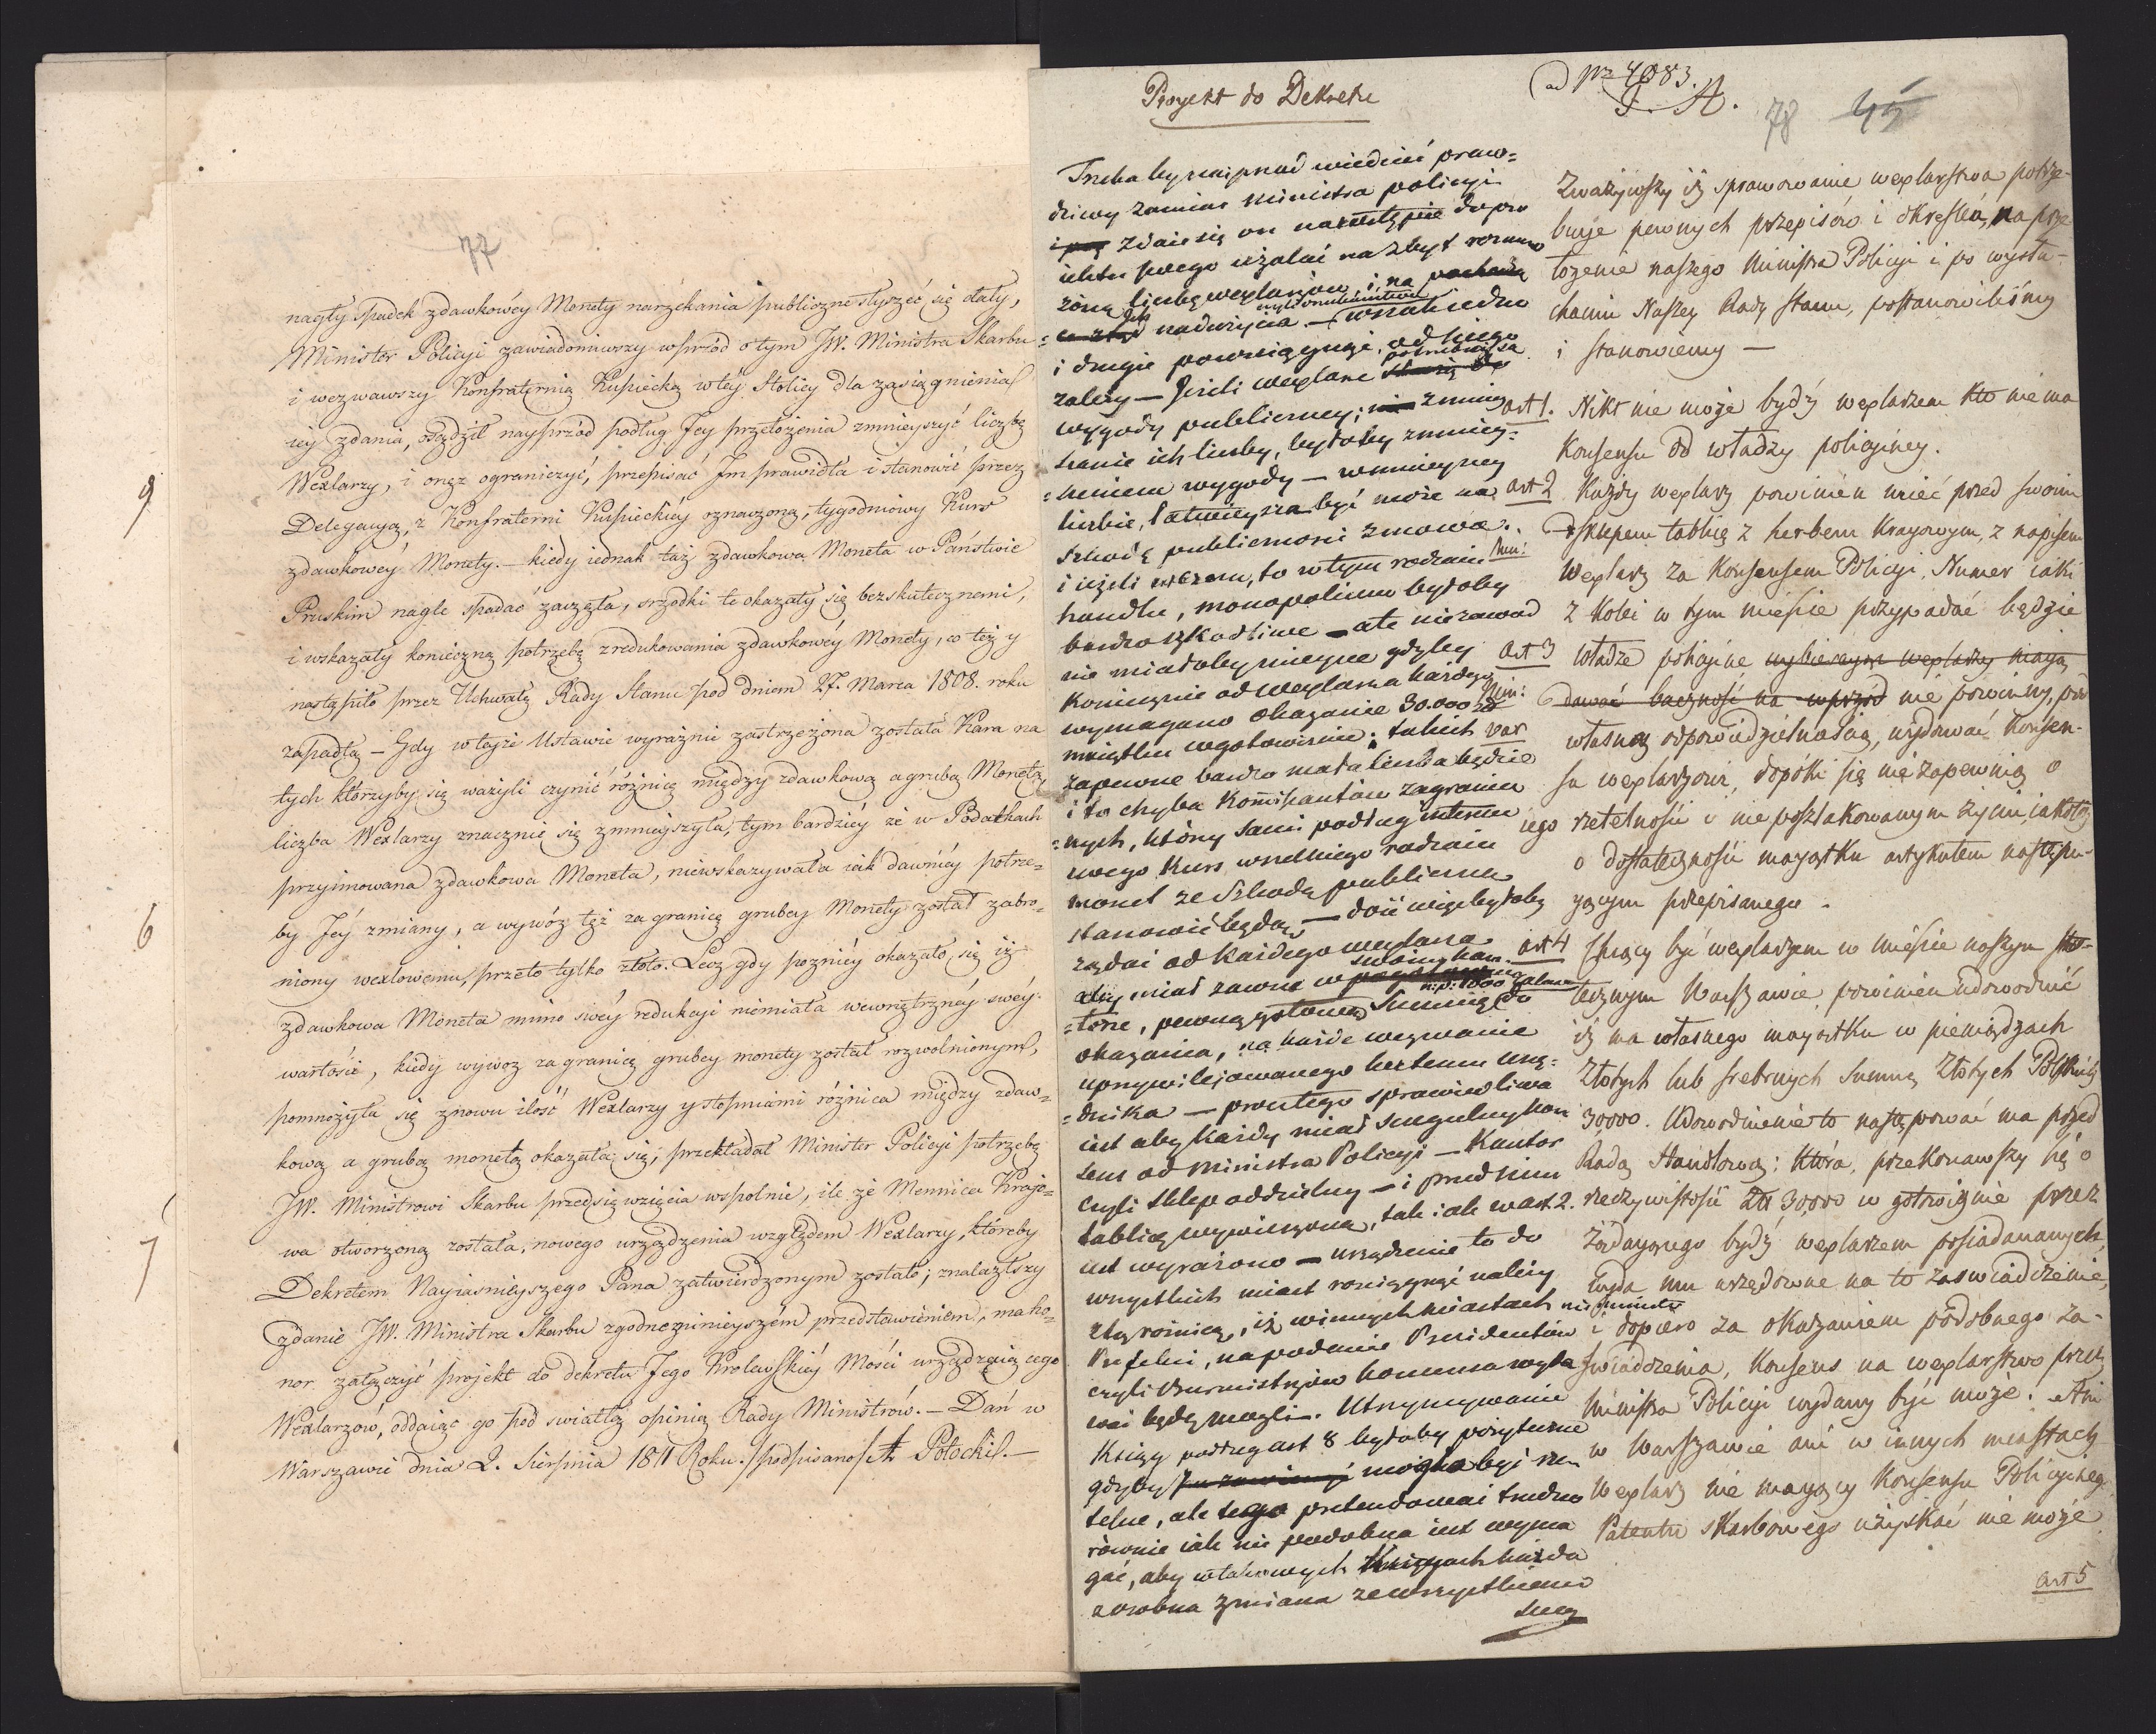 77
nagły spadek zdawkowéy Monety narzekania publiczne słyszeć się dały,
Minister Policyi zawiadomiwszy wprzód o tym JW. Ministra Skarbu
i wezwawszy Konfraternią Kupiecką w téy Stolicy dla zasiągnienia
iey zdania, osądził nayprzód podług Jey przełożenia zmnieyszyć liczbę
Wexlarzy, i onęz ograniczyć, przepisać Jm prawidła i stanowić przez
Delegacyą, z Konfraterni Kupieckiéy oznaczoną, tygodniowy Kurs
zdawkowéy Monety. – kiedy iednak taż zdawkowa Moneta w Państwie
Pruskim nagle spadać zaczęła, srzodki te okazały się bezskutecznemi,
i wskazały konieczną potrzebę zredukowania zdawkowéy Monety, co też y
nastąpiło przez Uchwałę Rady Stanu pod dniem 27. Marca 1808. roku
zapadłą – Gdy w teyże Ustawie wyraźnie zastrzeżona została Kara na
tych którzyby się ważyli czynić różnicę między zdawkową a grubą Monetą,
liczba Wexlarzy znacznie się zmnieyszyła, tym bardziéy że w Podatkach
przyimowana zdawkowa Moneta, niewskazywała iak dawniéy potrze-
by Jéy zmiany, a wywóz téż za granicę grubey Monety został zabro-
niony wexlowemu, przeto tylko złoto. Lecz gdy pozniéy okazało się iż
zdawkowa Moneta mimo swéy redukcyi niemiała wewnętrznéy swéy
wartości, kiedy wywoz za granicę grubey monety został rozwolnionym,
pomnożyła się znowu ilość Wexlarzy y stopniami różnica między zdaw-
kową a grubą monetą okazała się; przekładał Minister Policyi potrzebę
JW. Ministrowi Skarbu przedsięwzięcia wspolnie, ile że Mennica Krajo-
wa otworzoną została, nowego urządzenia względem Wexlarzy, któreby
Dekretem Nayiasnieyszego Pana zatwierdzonym zostało; znalazłszy
zdanie JW. Ministra Skarbu zgodne z ninieyszém przedstawieniem, ma ho-
nor załączyć projekt do dekretu Jego Krolewskiéy Mości urządzaiącego
Wexlarzów, oddaiąc go pod swiatłą opinią Rady Ministrów. – Dań w
Warszawie dnia 2. Sierpnia 1811 Roku. /podpisano/ A Potocki. –
9
6
7
Proyekt do Dekretu
ad Nr 4083.
78 45
Trzeba by naiprzud wiedzieć praw=
dziwy zamiar ministra policyi
zdaie się on
użalać na zbyt rozmno
żoną liczbę wexlarzów, i na
nadużycia – wszak iedno
i drugie powsciągnąć, od niego
zależy – Jeżeli wexlarze potrzebni są
wygody publiczney; zmniey
szenie ich liczby, byłoby zmniey=
szeniem wygody – w mnieyszey
liczbie, łatwieysza być może na
szkodę publiczności zmowa.
i ieżeli w czem, to w tym rodzaiu
handlu, monopolium byłoby
bardzo szkodliwe – ale niezawod
nie miałoby mieysce gdyby
koniecznie od wexlarza każdego
wymagano okazanie 30.000 zł
maiątku w gotowiznie; takich
zapewne bardzo mała liczba będzie
i to chyba Kommissantów zagranicz
nych, którzy sami podług interessu
swego kurs wszelkiego rodzaiu
monet ze szkodą publiczną
stanowić będą – dość więc byłoby
żądać od każdego wexlarza
aby miał zawsze w swoim kan=
torze, pewną gotową Summę do
okazania, na każde wezwanie
uprzywilejowanego ku temu urzę=
dnika – prócz tego sprawiedliwa
iest aby każdy miał szczegulny kon
sens od Ministra Policyi – Kantor
czyli sklep oddzielny – i przed nim
tablicę wywieszoną, tak iak w art. 2.
iest wyrażono – urządzenie to do
wszystkich miast rosciągnąć należy
z tą różnicą, iż w innych miastach nie minister
Prefekci, na podanie Prezidentów
czyli Burmistrzów konsensa wyda
wać będą mogli. Utrzymywanie
Księgi podług art 8 byłoby pożyteczne
gdyby mogła być rze
telne, ale tego pretendować trudno
równie iak nie podobna iest wyma
gać, aby w takowych Xięgach każda
z osobna zmiana ze wszystkiemi
Zważywszy iż sprawowanie wexlarstwa potrze-
buje pewnych przepisów i określeń, na prze
łożenie naszego Ministra Policyi i po wysłu-
chaniu Naszey Rady Stanu, postanowiliśmy
i stanowiemy –
art 1. Nikt nie może bydź wexlarzem kto nie ma
Konsensu od władzy policyiney.
art 2 Każdy wexlarz powinien mieć przed swoim
sklepem tablicę z herbem Kraiowym, z napisem
Wexlarz za Konsensem Policyi, Numer iaki
z kolei w tym mieście przypadać będzie
art 3 władze policyine wybierayąc wexlarzy mayą
dawać baczność na wprzod nie powinny, pod
własną odpowiedzielnością, wydawać Konsen-
su wexlarzowi, dopóki się nie zapewnią o
iego rzetelności i nieposzlakowanym życiu, iakoteż
o dostateczności mayątku artykułem następu-
yącym przepisanego.
art 4 Chcący być wexlarzem w mieście naszym sto-
łecznym Warszawie, powinien udowodnić
iż ma własnego mayątku w pieniądzach
Złotych lub srebrnych Summę Złotych Polskich
30000. Udowodnienie to następować ma przed
Radą Handlową; która, przekonawszy się o
rzeczywistości Zł 30,000 w gotowiznie przez
żądayącego bydź wexlarzem posiadanych,
wyda mu urzędowne na to zaswiadczenie,
i dopiero za okazaniem podobnego za-
świadczenia, Konsens na wexlarstwo przez
Ministra Policyi wydany być może. Ani
w Warszawie ani w innych miastach
Wexlarz nie mayący Konsensu Policyinego
Patentu skarbowego uzyskać nie może
art 5